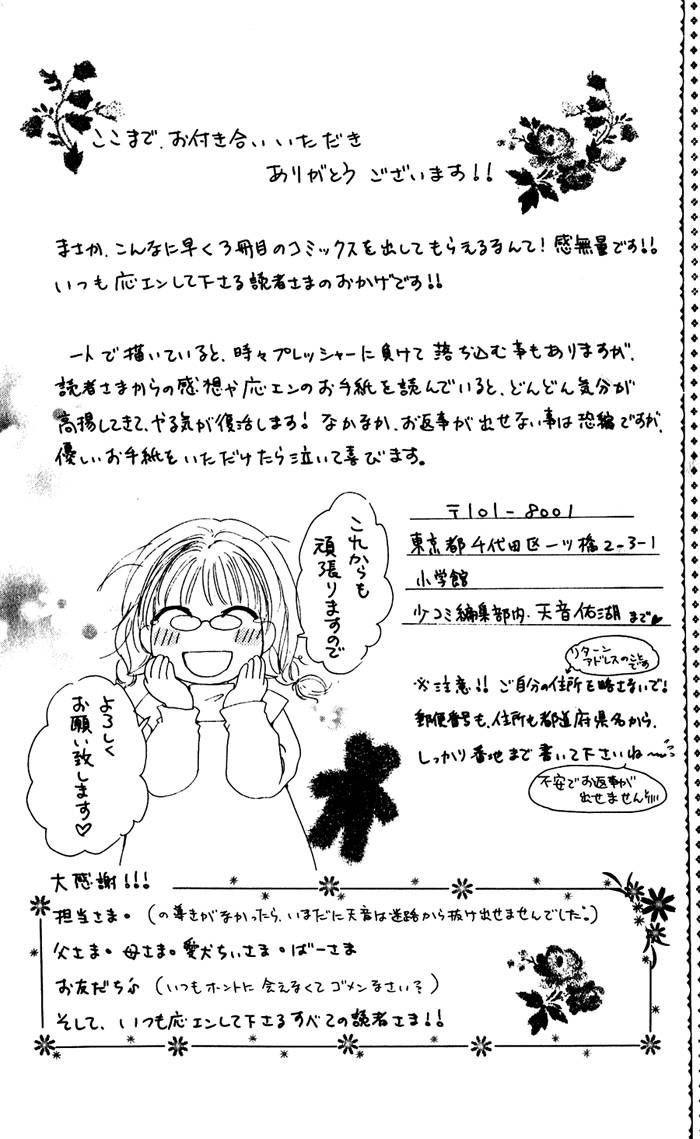 ここまで、お付き合いいただき
ありがとうございます!!
まさか、こんなに早く3冊目のコミックスを出してもらえるなんて!感無量です!!
いつも応エンして下さる読者さまのおかげです!!
一人で描いていると、時々プレッシャーに負けて落ち込む事もありますが、
読者さまからの感想や応エンのお手紙を読んでいると、どんどん気分が
高揚してきて、やる気が復活します!なかなか、お返事が出せない事は恐縮ですが、
優しいお手紙をいただけたら泣いて喜びます。
これからも
頑張りますので
よろしく
お願い致します♡
〒101-8001
東京都千代田区一ツ橋2-3-1
小学館
少コミ編集部内・天音佑湖まで♥
リターン
アドレスのこと
です
※注意!!ご自分の住所を略さないで!
郵便番号も、住所も都道府県名から、
しっかり番地まで書いて下さいね〜!!
不安でお返事が
出せません!!!
大感謝!!!
担当さま。(の導きがなかったら、いまだに天音は迷路から抜け出せませんでした。)
父さま。母さま。愛犬ちぃさま。ばーさま
お友だち♪(いつもホントに会えなくてゴメンなさい?)
そして、いつも応エンして下さるすべての読者さま!!